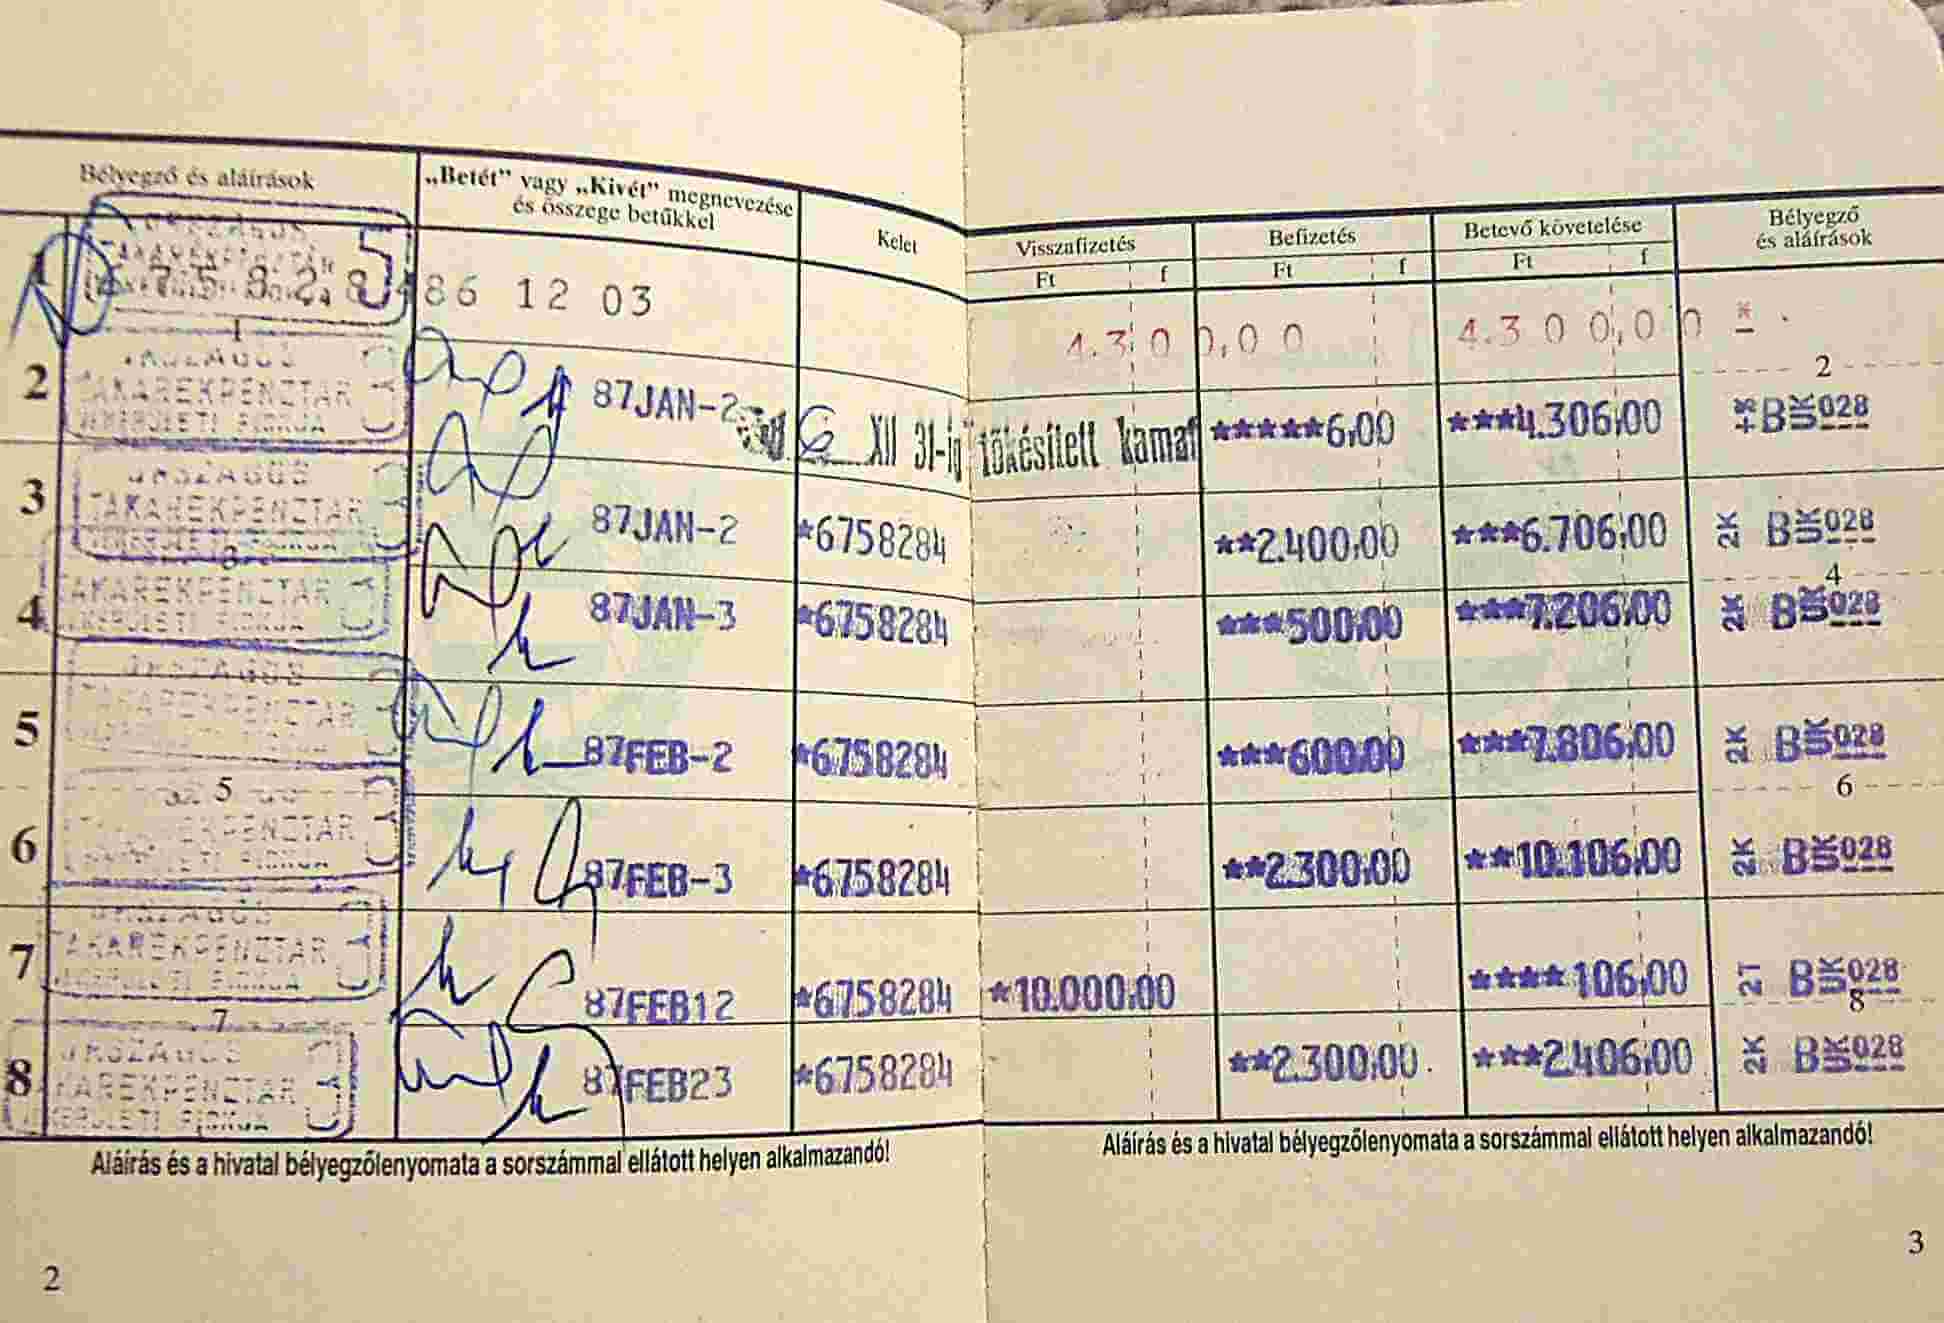 Bélyegző és aláírások
„Betét” vagy „Kivét” megnevezése
és összege betűkkel
Kelet
Visszafizetés
Ft f
Befizetés
Ft f
Betevő követelése
Ft f
Bélyegző
és aláírások
1 86 12 03 4.300,00 4.300,00 *
2 ORSZÁGOS
TAKARÉKPÉNZTÁR
87JAN-2 6 XII 31-ig tőkésített kamat *****6,00 ***4.306,00 028
2
3 ORSZÁGOS
TAKARÉKPÉNZTÁR
87JAN-2 *6758284 **2.400,00 ***6.706,00 2K 028
3
4 TAKARÉKPÉNZTÁR
87JAN-3 *6758284 ***500,00 ***7.206,00 2K 028
4
5 ORSZÁGOS
TAKARÉKPÉNZTÁR
87FEB-2 *6758284 ***600,00 ***7.806,00 2K 028
5
6 TAKARÉKPÉNZTÁR
87FEB-3 *6758284 **2.300,00 **10.106,00 2K 028
6
7 ORSZÁGOS
TAKARÉKPÉNZTÁR
87FEB12 *6758284 *10.000,00 ****106,00 2T 028
7
8
8 ORSZÁGOS
TAKARÉKPÉNZTÁR
87FEB23 *6758284 **2.300,00 ***2.406,00 2K 028
Aláírás és a hivatal bélyegzőlenyomata a sorszámmal ellátott helyen alkalmazandó!
Aláírás és a hivatal bélyegzőlenyomata a sorszámmal ellátott helyen alkalmazandó!
2
3